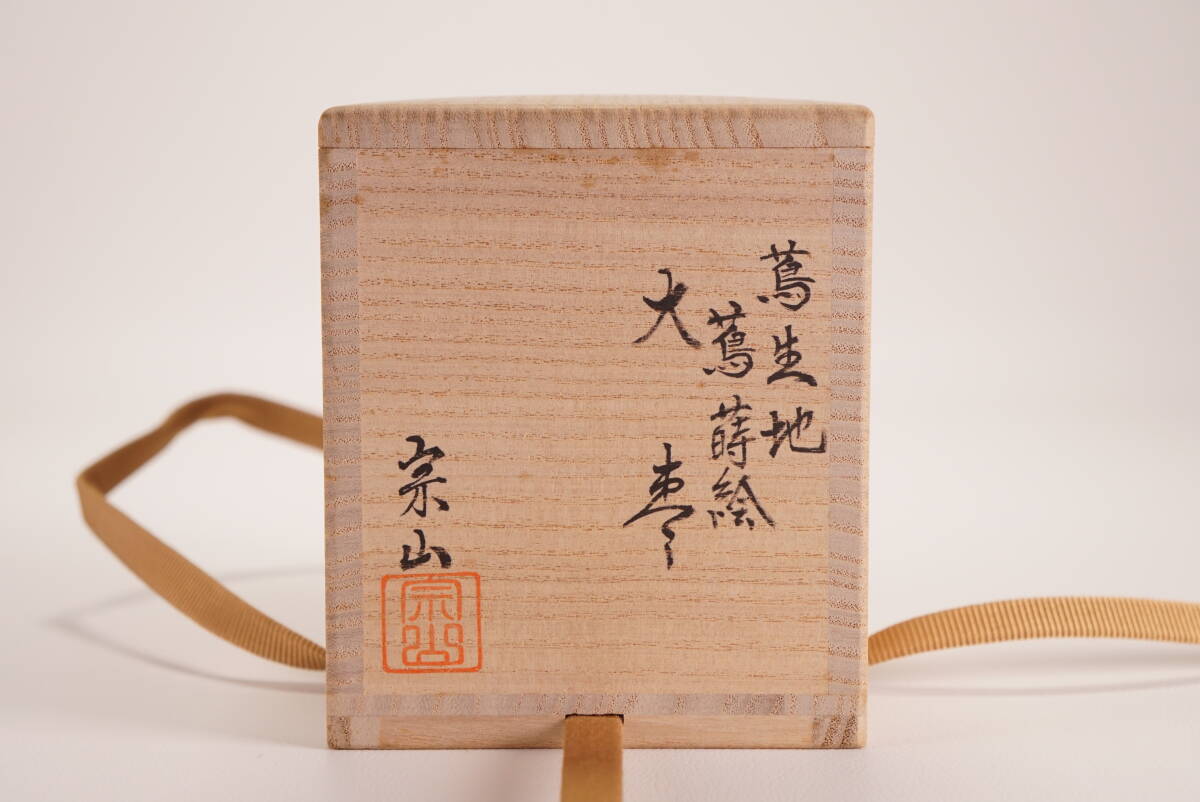 蔦生地
蔦蒔絵
大棗
宗山
宗山